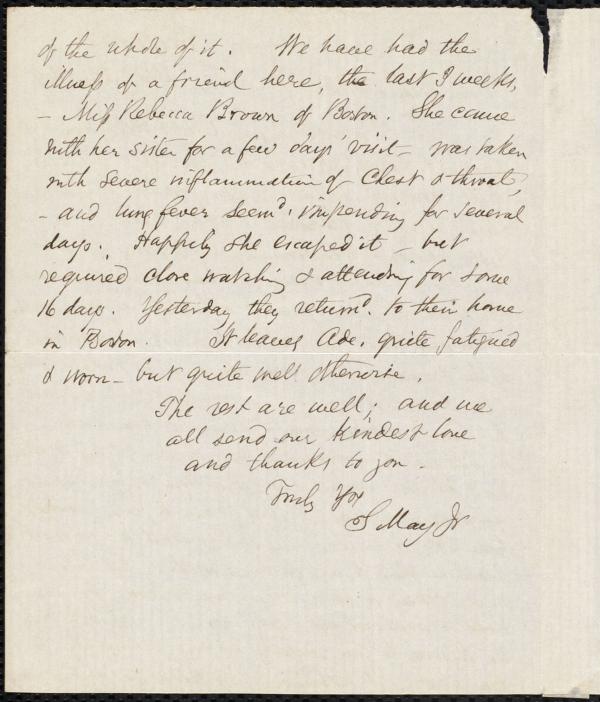 of the whole of it. We have had the
illness of a friend here, the last 3 weeks,
- Miss Rebecca Brown of Boston. She came
with her sister for a few days' visit - was taken
with severe inflammation of Chest & throat,
- and lung fever seem'd impending for several
days. Happily she escaped it - but
required close watching & attending for some
16 days. Yesterday they return'd to their home
in Boston. It leaves Ade. quite fatigued
& worn - but quite well otherwise.
The rest are well; and we
all send our kindest love
and thanks to you.
Truly Yrs
S May Jr